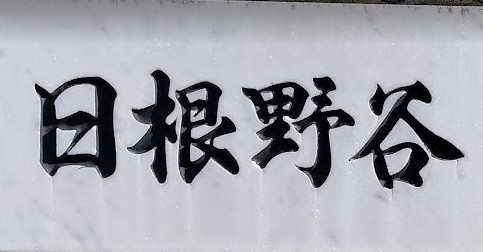 日根野谷